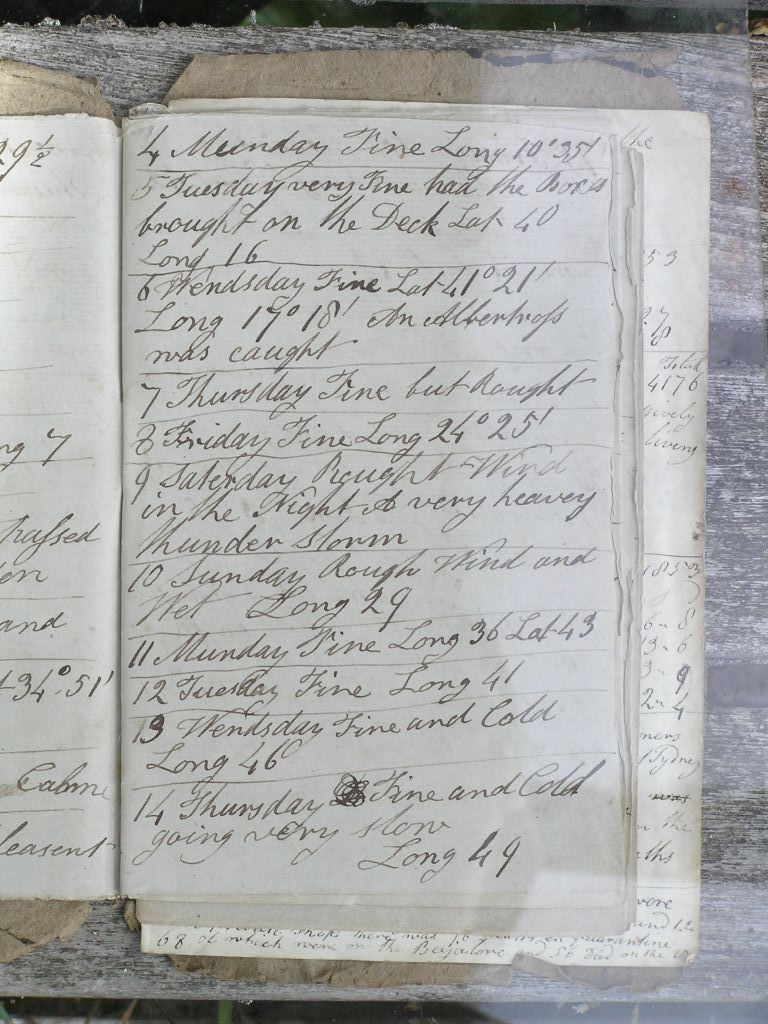 29 1/2
ng 7
and
34° 51'
Calm
leasent
4 Munday Fine Long 10° 35'
5 Tuesday very Fine had the Boxes
brought on the Deck Lat 40
Long 16
6 Wendsday Fine Lat 41° 21'
Long 17° 18' An Albertross
was caught
7 Thursday Fine but Rought
8 Friday Fine Long 24° 25'
9 Saterday Rought Wind
in the Night A very heavey
thunder storm
10 Sunday Rough Wind and
Wet Long 29
11 Munday Fine Long 36 Lat 43
12 Tuesday Fine Long 41
13 Wendsday Fine and Cold
Long 46
14 Thursday Fine and Cold
going very slow
Long 49
the
53
Total
4176
sively
living
1853
6 " 8
13 " 6
3 " 9
2 " 4
Sydney
was
the
ths
were
and 12
there was in quarantine
68 of which were on the and 56 died on the